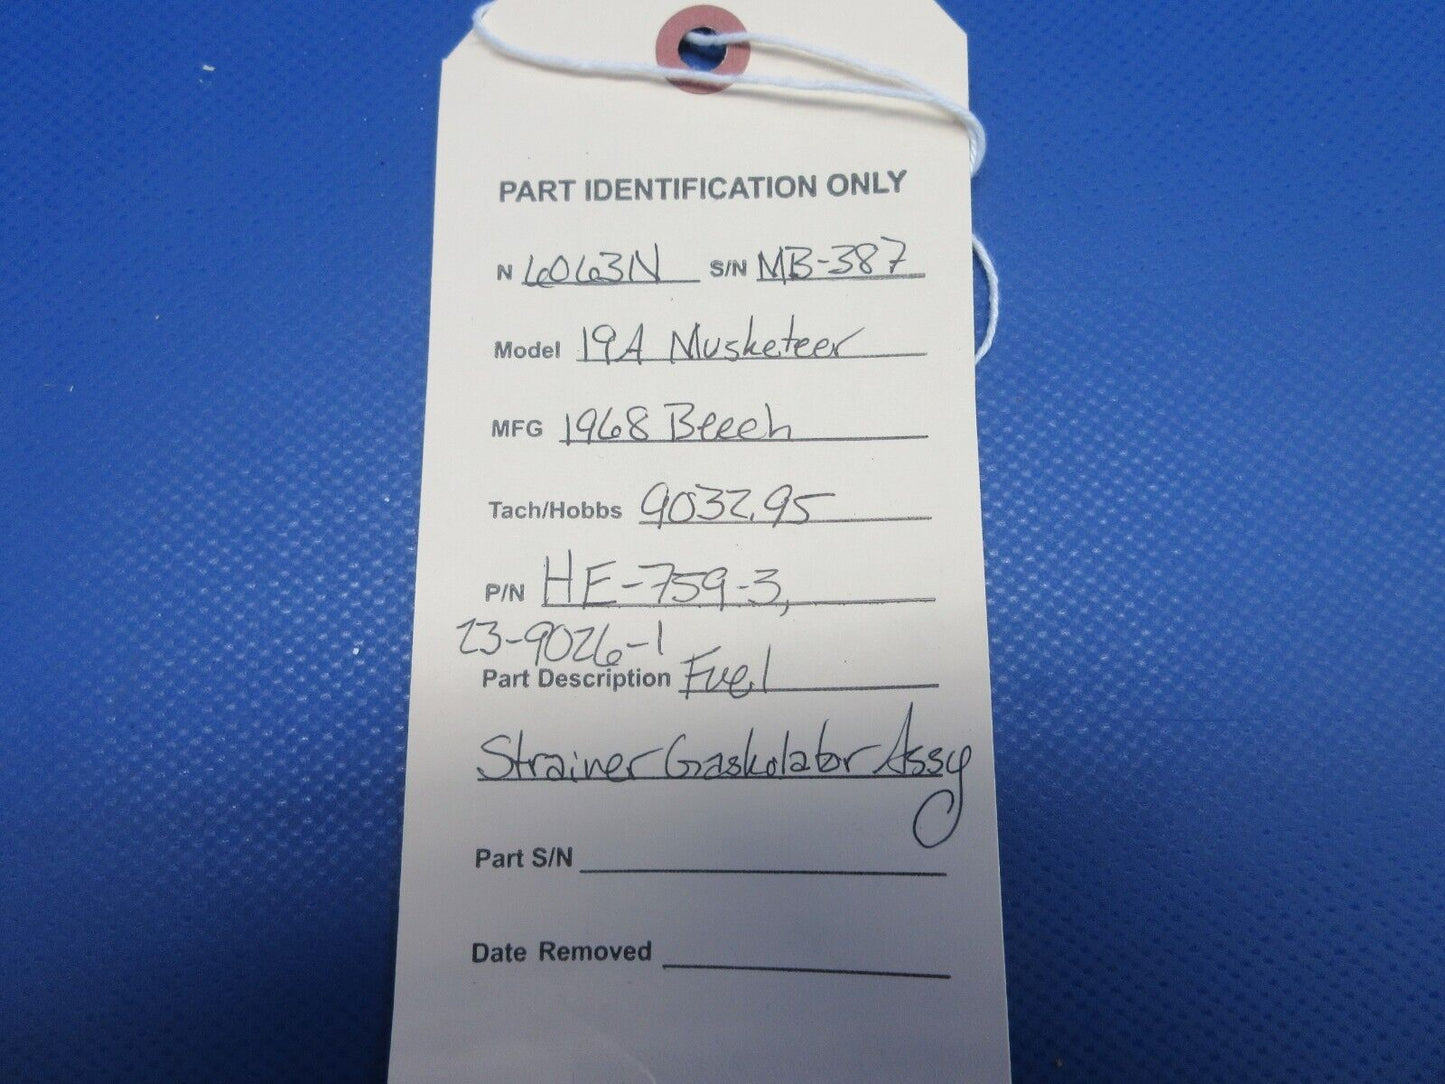 PART IDENTIFICATION ONLY
N 6063N S/N MB-387
Model 19A Musketeer
MFG 1968 Beech
Tach/Hobbs 9032.95
P/N HE-759-3,
23-9026-1
Part Description Fuel
Strainer Gaskolator Assy
Part S/N
Date Removed